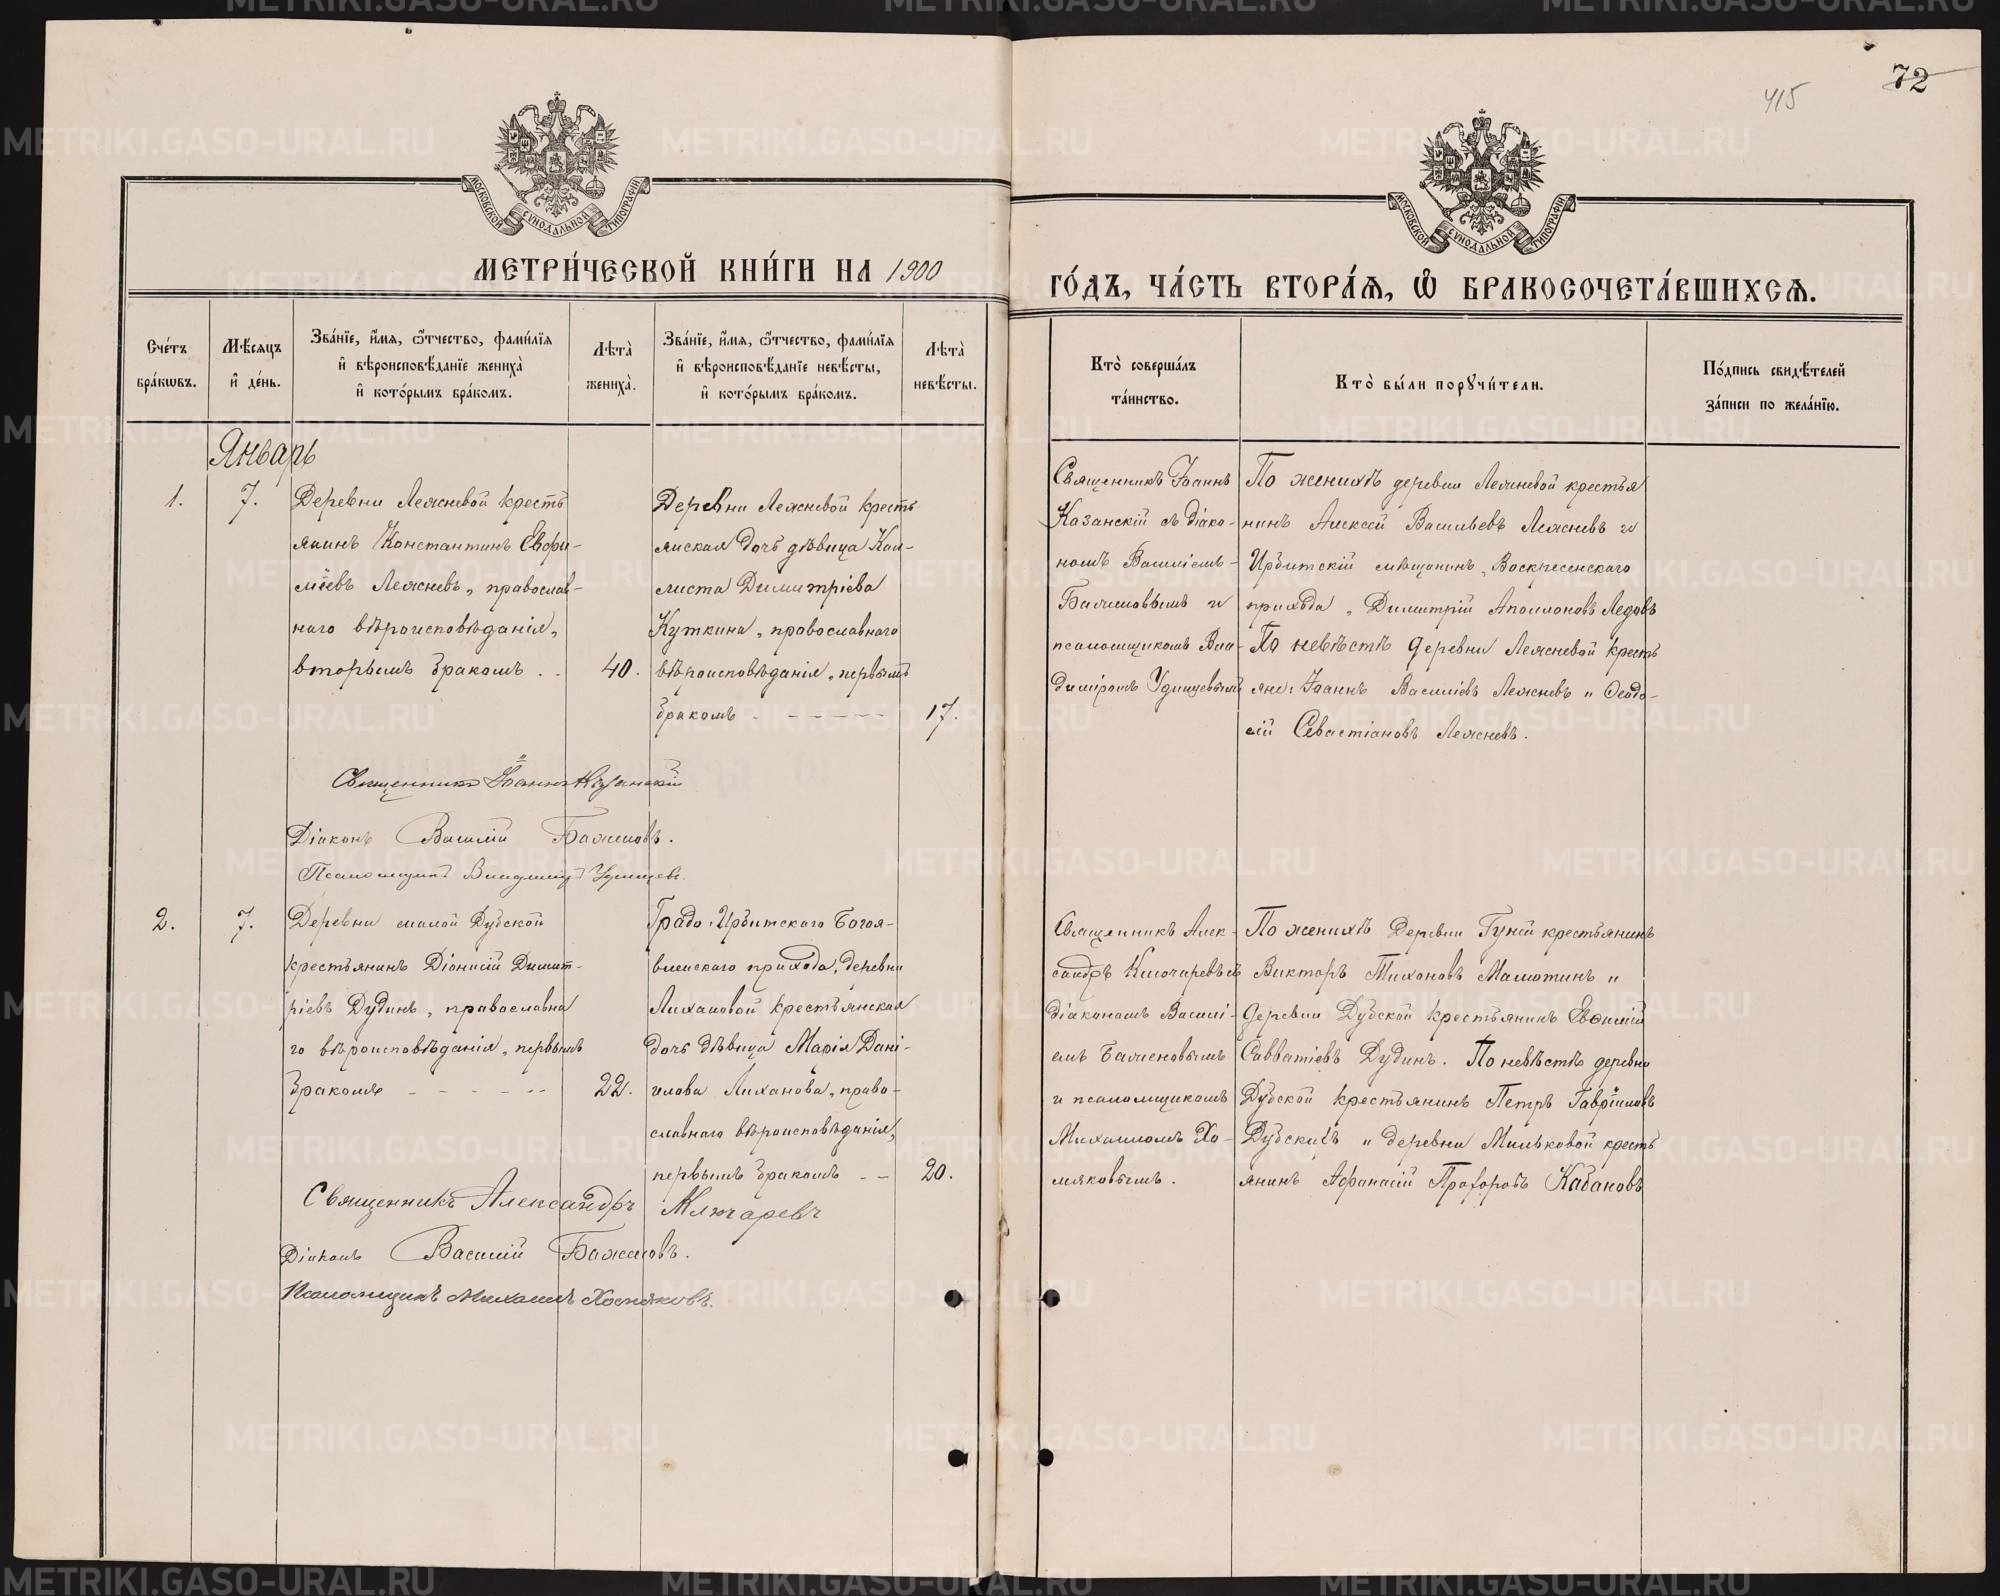 72
415
МОСКОВСКОЙ СѴНОДАЛЬНОЙ ТИПОГРАФІИ
МОСКОВСКОЙ СѴНОДАЛЬНОЙ ТИПОГРАФІИ
МЕТРИ́ЧЕСКОЙ КНИ́ГИ НА 1900
ГО́ДЪ, ЧА́СТЬ ВТОРА́Ѧ, Ѽ БРАКОСОЧЕТА́ВШИХСѦ.
Сче́тъ
бра́кѡвъ.
Мѣ́сѧцъ
и҆ де́нь.
Зва́нїе, и҆́мѧ, ѻ҆́тчество, фами́лїѧ
и҆ вѣроисповѣ́данїе жениха̀
и҆ кото́рымъ бра́комъ.
Лѣта̀
жениха̀.
Зва́нїе, и҆́мѧ, ѻ҆́тчество, фами́лїѧ
и҆ вѣроисповѣ́данїе невѣ́сты,
и҆ кото́рымъ бра́комъ.
Лѣта̀
невѣ́сты.
Кто̀ соверша́лъ
та́инство.
Кто̀ бы́ли порꙋчи́тели.
По́дпись свидѣ́телей
за́писи по жела́нїю.
Январь
1.
7.
Деревни Лежневой кресть
янинъ Константинъ Евфи-
міевъ Лежневъ, православ-
наго вѣроисповѣданія,
вторымъ бракомъ . .
40.
Деревни Лежневой кресть
янская дочь дѣвица Кал-
листа Димитріева
Куткина, православнаго
вѣроисповѣданія, первымъ
бракомъ - - - - - -
17.
Священникъ Іоаннъ
Казанскій съ діако-
номъ Василіемъ
Баженовымъ и
псаломщикомъ Вла-
диміромъ Удинцевымъ
По женихѣ деревни Лежневой крестья
нинъ Алексѣй Васильевъ Лежневъ и
Ирбитскій мѣщанинъ, Воскресенскаго
прихода, Димитрій Аполлоновъ Ледовъ
По невѣстѣ деревни Лежневой кресть
яне: Іоаннъ Василіевъ Лежневъ и Ѳеодо-
сій Севастіановъ Лежневъ.
Священникъ Іоаннъ Казанскій
Діаконъ Василій Баженовъ.
Псаломщикъ Владиміръ Удинцевъ.
2.
7.
Деревни малой Дубской
крестьянинъ Діонисій Димит-
ріевъ Дудинъ, православна
го вѣроисповѣданія, первымъ
бракомъ - - - - - -
22.
Градо-Ирбитскаго Богоя-
вленскаго прихода, деревни
Лихановой крестьянская
дочь дѣвица Марія Дані-
илова Лиханова, право-
славнаго вѣроисповѣданія,
первымъ бракомъ - -
20.
Священникъ Алек-
сандръ Ключаревъ съ
діакономъ Василі-
емъ Баженовымъ
и псаломщикомъ
Михаиломъ Хо-
мяковымъ.
По женихѣ деревни Гуней крестьянинъ
Викторъ Тихоновъ Малютинъ и
деревни Дубской крестьянинъ Евѳимій
Савватіевъ Дудинъ. По невѣстѣ деревни
Дубской крестьянинъ Петръ Гавріиловъ
Дубскихъ и деревни Мильковой кресть
янинъ Афанасій Прохоровъ Кабановъ
Священникъ Александръ Ключаревъ
Діаконъ Василій Баженовъ.
Псаломщикъ Михаилъ Хомяковъ.
METRIKI.GASO-URAL.RU